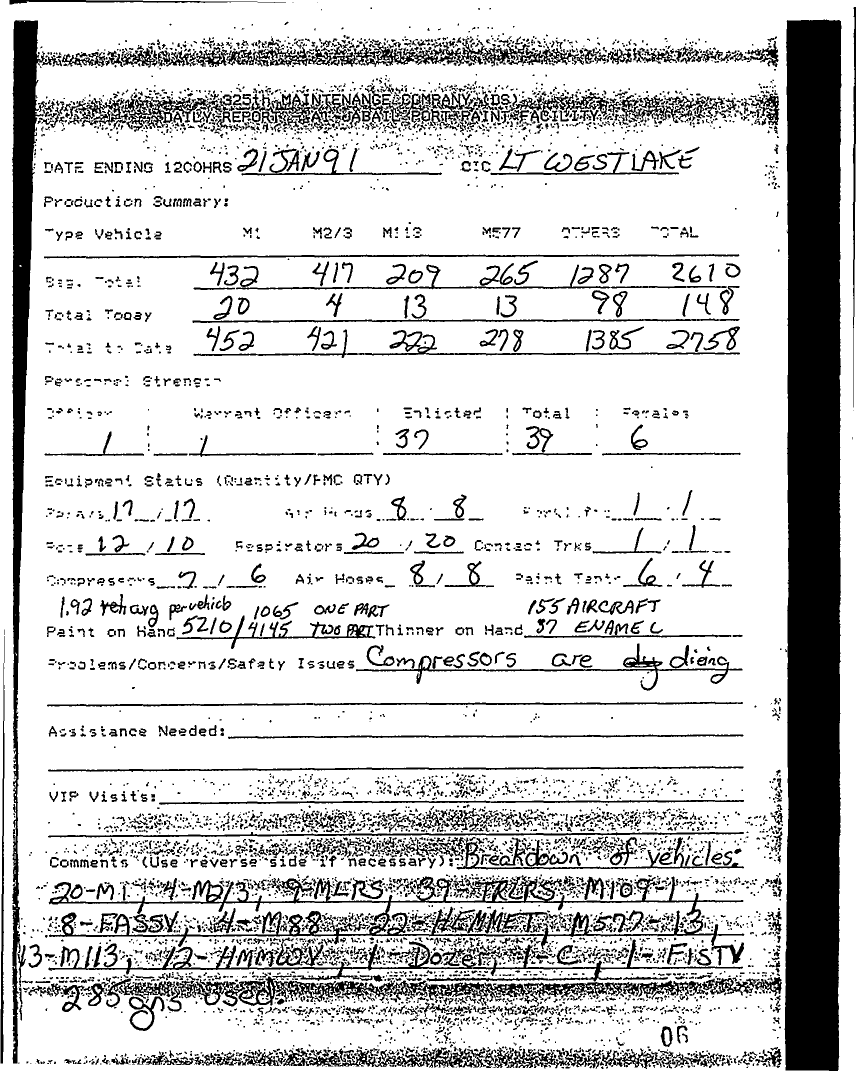 325th MAINTENANCE COMPANY (DS)
DAILY REPORT - AL-JABAIL PORT PAINT FACILITY
DATE ENDING 1200HRS 21JAN91 OIC LT WESTLAKE
Production Summary:
Type Vehicle M1 M2/3 M113 M577 OTHERS TOTAL
Beg. Total 432 417 209 265 1287 2610
Total Today 20 4 13 13 98 148
Total to Date 452 421 222 278 1385 2758
Personnel Strength
Officer Warrant Officers Enlisted Total Females
1 1 37 39 6
Equipment Status (Quantity/FMC QTY)
17 / 17 Air 8 / 8 Forklifts 1 / 1
Pots 12 / 10 Respirators 20 / 20 Contact Trks 1 / 1
Compressors 7 / 6 Air Hoses 8 / 8 Paint Tents 6 / 4
1.92 avg per vehicle 1065 ONE PART 155 AIRCRAFT
Paint on Hand 5210/4145 TWO PART Thinner on Hand 37 ENAMEL
Problems/Concerns/Safety Issues Compressors are dy dieing
Assistance Needed:
VIP Visits:
Comments (Use reverse side if necessary): Breakdown of vehicles:
20-M1, 4-M2/3, 9-MLRS, 39-TRLRS, M109-1,
8-FASSV, 4-M88, 22-HEMMET, M577-13,
13-M113, 12-HMMWV, 1-Dozer, 1-C, 1-FISTV
285 gns used.
06